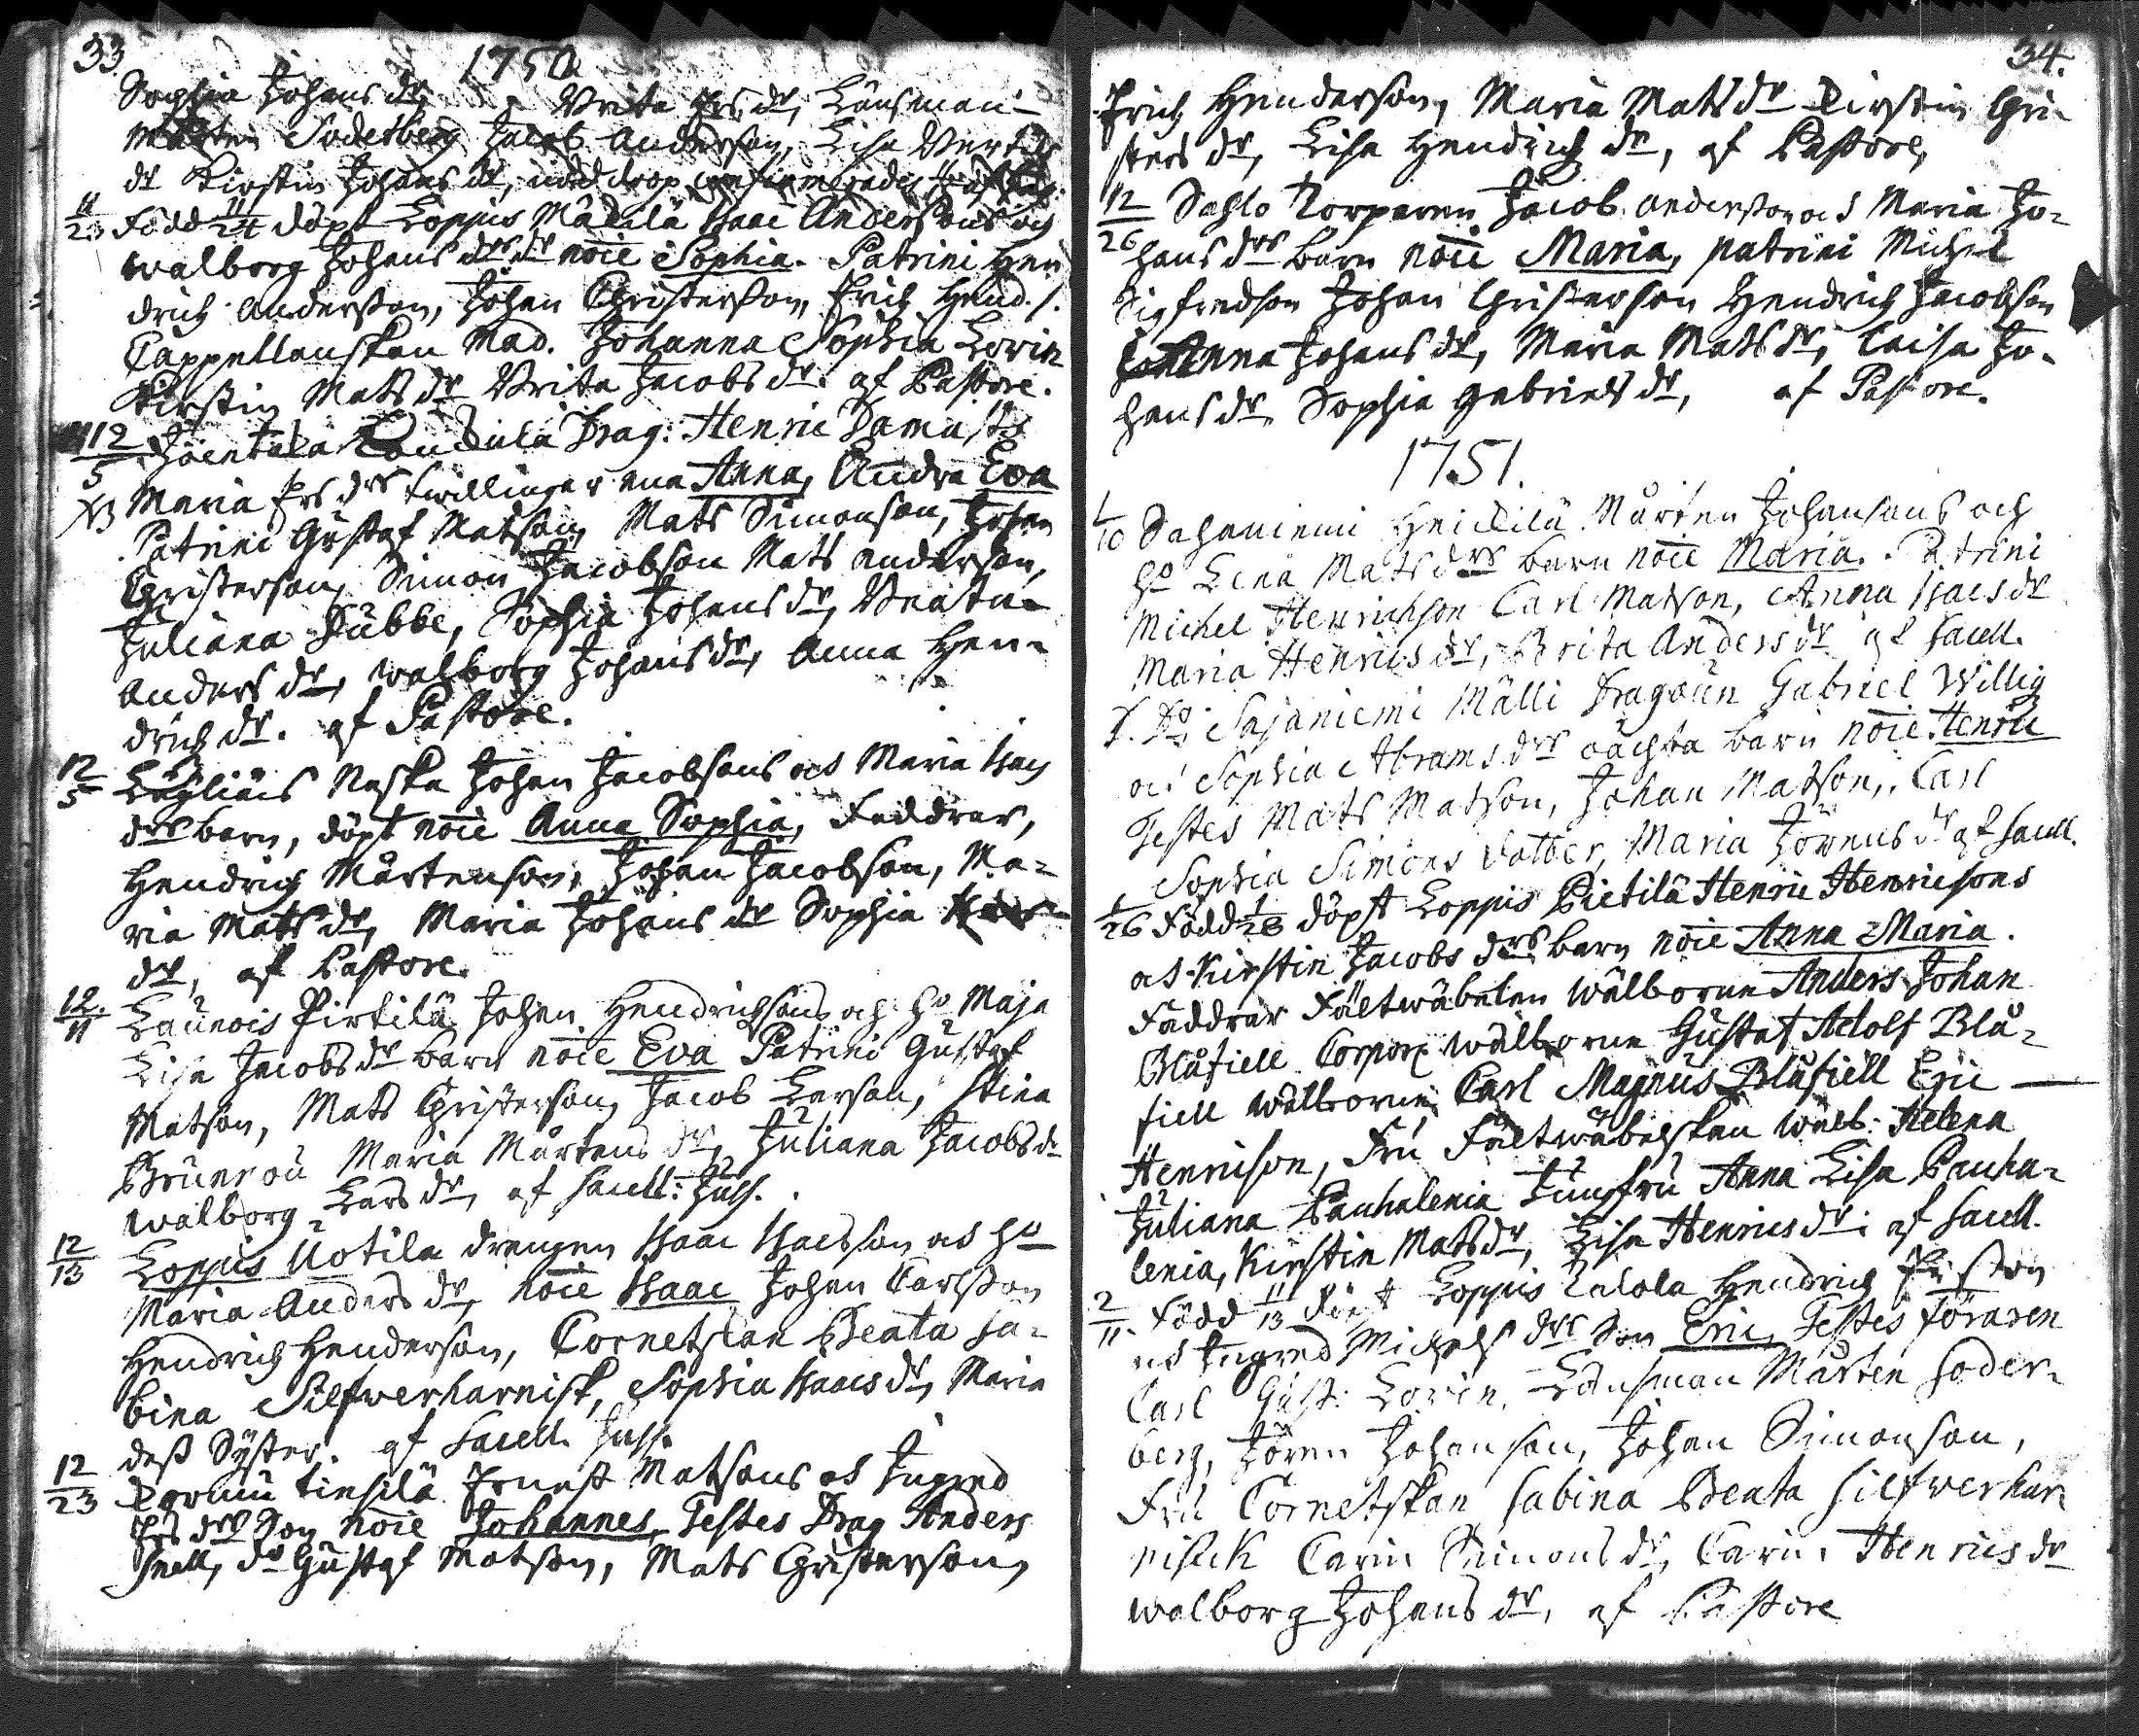 33.
1750
Sophia Johans dr, Brita Ers dr, Länsman
Mårten Söderberg Jacob Anderson, Lisa Bertils
dr Kirstin Johans dr, nöddop confirmerades
11/23 Född 11/24 döpt Loppis Mäkilä Isaac Andersons och
Walborg Johans drs dr noie Sophia. Patrini Hen
drich Anderson, Johan Christerson, Erich Hend. s.
Cappellanskan Mad. Johanna Sophia Lovin
Kirstin Mats dr Brita Jacobs dr. af Pastore.
12/5 Drag: Henric Damu
Maria Ers drs twillingar ena Anna, Andra Eva
Patrini Gustaf Matson, Mats Simonson, Johan
Christerson, Simon Jacobson Mats Anderson,
Juliana Dübbe, Sophia Johans dr, Beata
Anders dr, Walborg Johans dr, Anna Hen-
drich dr. af Pastore.
12/5 Läyliäis Naska Johan Jacobsons och Maria Isacs
drs barn, döpt noie Anna Sophia, Faddrar,
Hendrich Mårtenson, Johan Jacobson, Ma-
ria Mats dr, Maria Johans dr Sophia
dr, af Pastore.
12/11 Launois Pirtilä Johan Hendrichsons och ho Maja
Lisa Jacobs dr barn noie Eva Patrini Gustaf
Matson, Mats Christerson, Jacob Larson, Stina
Brunrou Maria Mårtens dr, Juliana Jacobs dr
Walborg Lars dr, af Sacell: Juss.
12/13 Loppis Uotila drengen Isaac Isacsson och ho
Maria Anders dr, noie Isaac Johan Carlsson
Hendrich Henderson, Cornetskan Beata Sa-
bina Silfwerharnisk, Sophia Isaacs dr, Maria
dess Syster. af Sacell. Juss.
12/23 Tormu Ernest Matsons och Ingred
Ers drs Son noie Johannes, Testes Drag Anders
Snell, do Gustaf Matson, Mats Christerson,
34.
Erich Henderson, Maria Mats dr Kirstin Chri-
sters dr, Lisa Hendrich dr, af Pastore,
12/26 Sahlo Torparen Jacob Anderson och Maria Jo-
hans drs barn noie Maria, patrini Michel
Sigfredson Johan Christerson Hendrich Jacobson
Anna Johans dr, Maria Mats dr, Caisa Jo-
hans dr, Sophia Gabriels dr, af Pastore.
1751.
1/10 Sajaniemi Heickilä Mårten Johansons och
ho Lena Mats drs barn noie Maria. Patrini
Michel Henrichson Carl Matson, Anna Isacs dr
Maria Henrics dr, Brita Anders dr af Sacell.
d. do Sajaniemi Mälli Dragoun Gabriel Willig
och Sophia Abrams drs oächta barn noie Henric
Testes Mats Matson, Johan Matson, Carl
Sophia Simons dotter, Maria Jörens dr af Sacell.
1/26 Född 1/28 döpt Loppis Pietilä Henric Henricsons
och Kirstin Jacobs drs barn noie Anna Maria.
Faddrar Fältwäbelen Wälborne Anders Johan
Blåfiell Corpor: wälborne Gustaf Adolf Blå-
fiell wälborne Carl Magnus Blåfiell Eric
Henricson, Fru Fältwäbelskan wälb: Helena
Juliana Pauhalenia Jungfru Anna Lisa Pauha-
lenia, Kirstin Mats dr, Lisa Henrics dr: af Sacell.
2/11. Född 11/13 döpt Loppis Hendrich Ersson
och Ingred Michels drs Son Eric, Testes Fönriken
Carl Gust: Lovin, Länsman Mårten Söder-
berg, Jören Johanson, Johan Simonson,
Fru Cornetskan Sabina Beata Silfwerhar
nisck Carin Simons dr, Carin Henrics dr
Walborg Johans dr, af Pastore